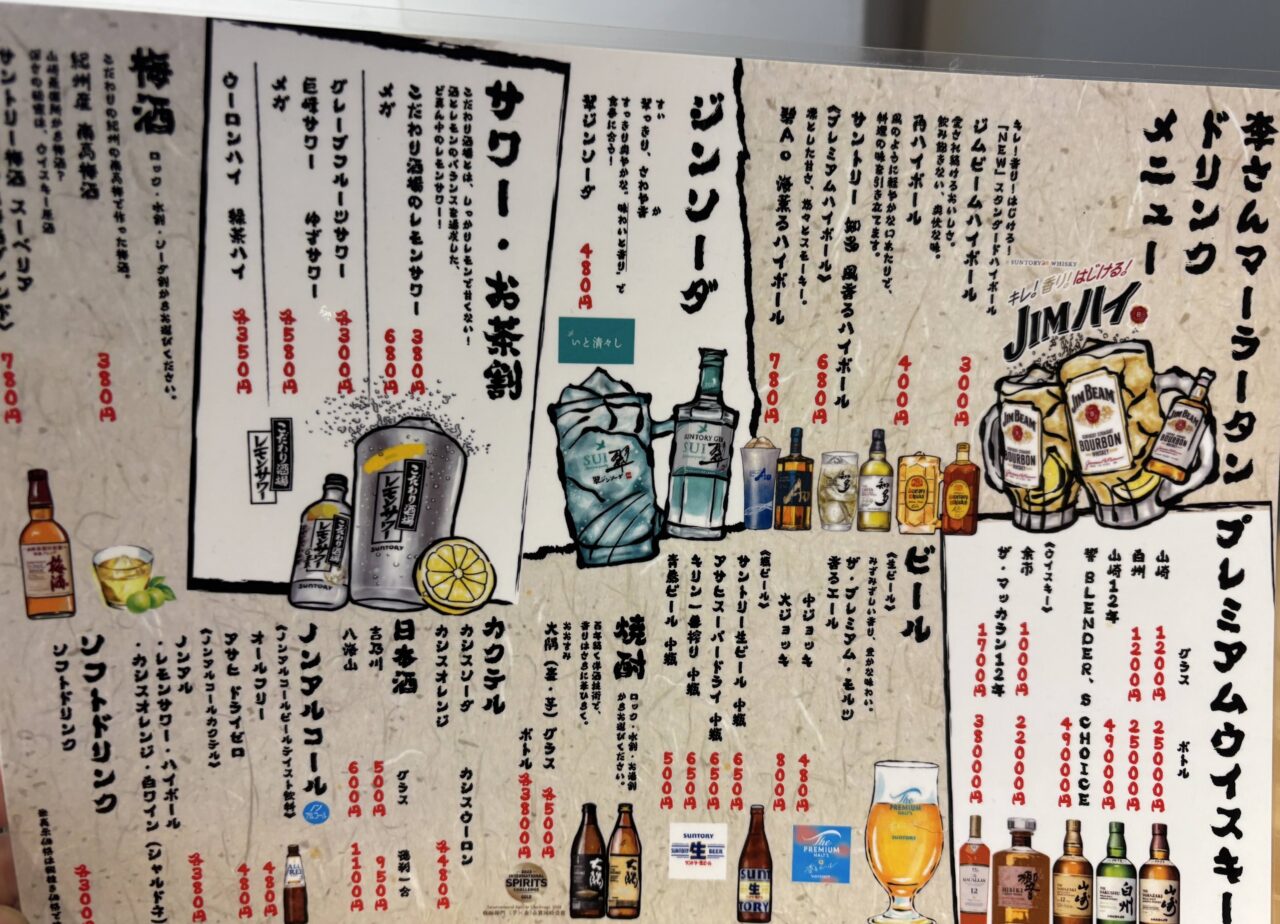 李さんマーラータン
ドリンク
メニュー
キレ!香り!はじける!
「NEW」スタンダードハイボール
ジムビームハイボール
300円
愛され続けるおいしさ。
飲み飽きない、爽快な味。
角ハイボール
400円
風のように軽やかな口あたりで、
料理の味を引き立てます。
サントリー 知多 風香るハイボール
680円
《プレミアムハイボール》
凛とした甘さ、悠々とスモーキー。
碧Ao 海薫るハイボール
780円
SUNTORY WHISKY
キレ!香り!はじける!
JIMハイ。
JIM BEAM
BOURBON
ジンソーダ
すい
翠すっきり、さわやか
すっきり爽やかな。味わいと香り」で
食事に合う!
翠ジンソーダ
480円
いと清々し
SUNTORY GIN
SUI 翠
サワー・お茶割
こだわり酒場とは、しっかりレモンで甘くない!
酒とレモンのバランスを追求した、
ど真ん中のレモンサワー!
こだわり酒場のレモンサワー
380円
メガ
680円
グレープフルーツサワー
各300円
巨峰サワー ゆずサワー
メガ
各580円
ウーロンハイ 緑茶ハイ
各350円
こだわり酒場
レモンサワー
SUNTORY
梅酒
ロック・水割・ソーダ割からお選びください。
こだわりの紀州の南高梅で作った梅酒。
紀州産 南高梅酒
380円
サントリー梅酒 スーペリア
780円
プレミアムウイスキー
グラス ボトル
山崎 1200円 25000円
白州 1200円 25000円
山崎12年 49000円
響 BLENDER,S CHOICE 49000円
《ウイスキー》
余市 1000円 22000円
ザ・マッカラン12年 1700円 38000円
ビール
《生ビール》
みずみずしい香り、豊かな味わい。
ザ・プレミアム・モルツ
香るエール
中ジョッキ 480円
大ジョッキ 800円
《瓶ビール》
サントリー生ビール 中瓶 650円
アサヒスーパードライ 中瓶 650円
キリン一番搾り 中瓶 650円
青島ビール 中瓶 500円
The PREMIUM MALT'S
SUNTORY
生
BEER
焼酎
ロック・水割・お湯割
からお選びください。
百年続く伴酒技術で、
香りはさらに華ひらく。
おおすみ
大隅(麦・芋) グラス 各500円
ボトル 各3800円
SPIRITS
カクテル
カシスソーダ カシスウーロン
カシスオレンジ
各480円
日本酒
グラス 徳利一合
吉乃川 500円 950円
八海山 600円 1100円
ノンアルコール
《ノンアルコールビールテイスト飲料》
オールフリー 480円
アサヒ ドライゼロ 480円
《ノンアルコールカクテル》
ノンアル
・レモンサワー・ハイボール
・カシスオレンジ・白ワイン(シャルドネ)
各380円
ソフトドリンク
ソフトドリンク
各300円